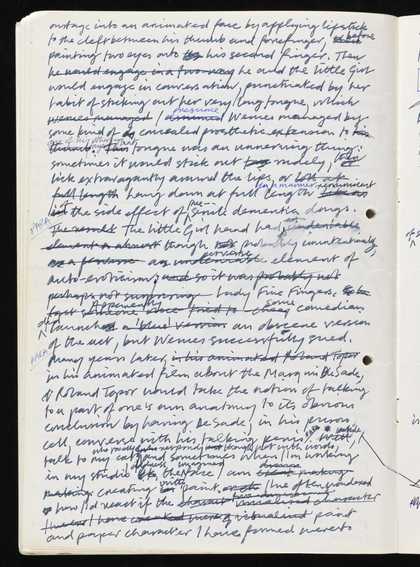 onstage into an animated face by applying lipstick
to the cleft between his thumb and forefinger, before
painting two eyes onto his second finger. Then
he would engage in a two-way he and the little Girl
would engage in conversation, punctuated by her
habit of sticking out her very long tongue, which
Wences managed / I presume Wences managed by
some kind of concealed prosthetic extension to his
thumb. That tongue was an unnerving thing:
sometimes it would stick out rudely,
lick extravagantly around the lips, or
full length hang down at full length in a manner reminiscent
of the side effect of senile dementia drugs.
The result The little Girl hand had an undeniable
element almost though probably unintentionally
as a feminine an undeniable perverse element of
auto-eroticism, and so it was probably not
perhaps not surprising Lady Five Fingers.
Apparently some cheesy comedian
launched a 'blue' version an obscene version
of the act, but Wences successfully sued.
Many years later, in his animated Roland Topor
in his animated film about the Marquis De Sade,
Roland Topor would take the notion of talking
to a part of one's own anatomy to its obvious
conclusion by having De Sade, in his prison
cell, converse with his talking penis. I
talk to my cat and sometimes when I'm working
in my studio
creating with paint I've often wondered
how I'd react if the
I have paint
and paper character I have formed were to